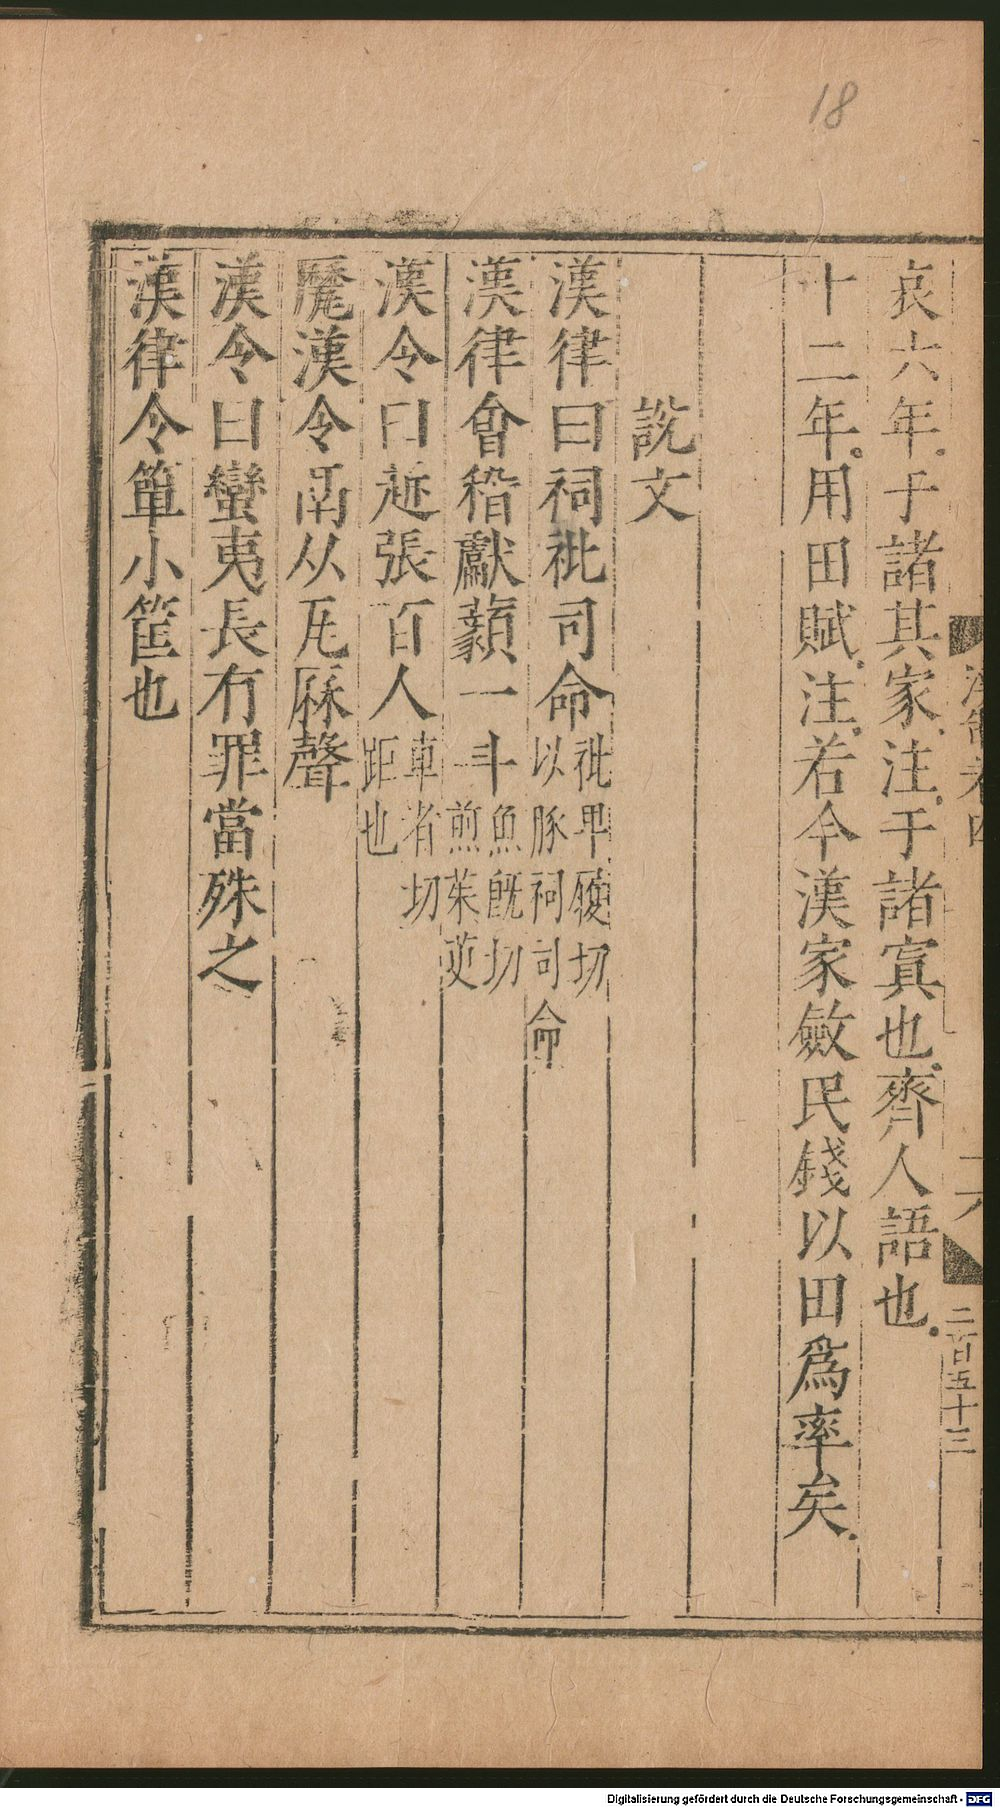 18
哀六年于諸其家注于諸寘也齊人語也
十二年用田賦注若今漢家斂民錢以田爲率矣
說文
漢律曰祠祂司命祂卑履切以豚祠司命
漢律會稽獻䔽一斗魚旣切煎茱萸
漢令曰趀張百人車者切距也
㽁漢令鬲从瓦厤聲
漢令曰蠻夷長有罪當殊之
漢律令簞小筐也
二百五十三
Digitalisierung gefördert durch die Deutsche Forschungsgemeinschaft - DFG